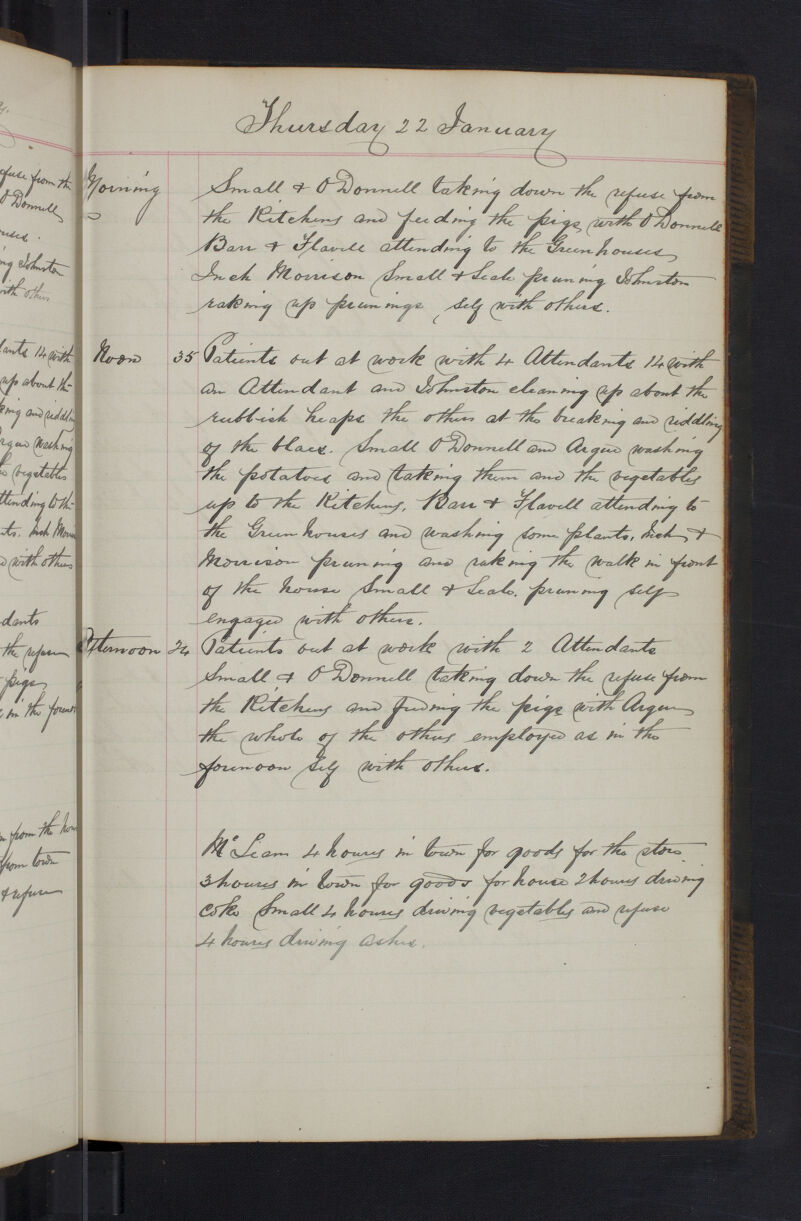 y.
efuse from the
O'Donnell
uses.
ng Johnston
with others
dants 14 with
up about the
king and riddling
rgue washing
e vegetables
ttending to the
nts. Inch Morri
d with others
dants
the refuse
pigs
in the foren
from the hou
from town
& refuse
Thursday 22 January
Morning Small & O'Donnell taking down the refuse from
the Kitchens and feeding the pigs, with O'Donnell
Barr & Flavell attending to the Greenhouses,
Inch Morrison Small & Seale pruning Johnston
raking up prunings, self with others.
Noon 35 Patients out at work with 4 Attendants 14 with
an Attendant and Johnston cleaning up about the
rubbish heaps the others at the breaking and riddling
of the blaes. Small O'Donnell and Argue washing
the potatoes and taking them and the vegetables
up to the Kitchens, Barr & Flavell attending to
the Green houses and washing some plants, Inch &
Morrison pruning and raking the walk in front
of the house Small & Seale, pruning self
engaged with others.
Afternoon 24 Patients out at work with 2 Attendants
Small & O'Donnell taking down the refuse from
the Kitchens and feeding the pigs with Argue
the whole of the others employed as in the
forenoon self with others.
Mc Lean 4 hours in town for goods for the store
3 hours in town for goods for house 2 hours driving
Coke Small 4 hours driving vegetables and refuse
4 hours driving ashes.